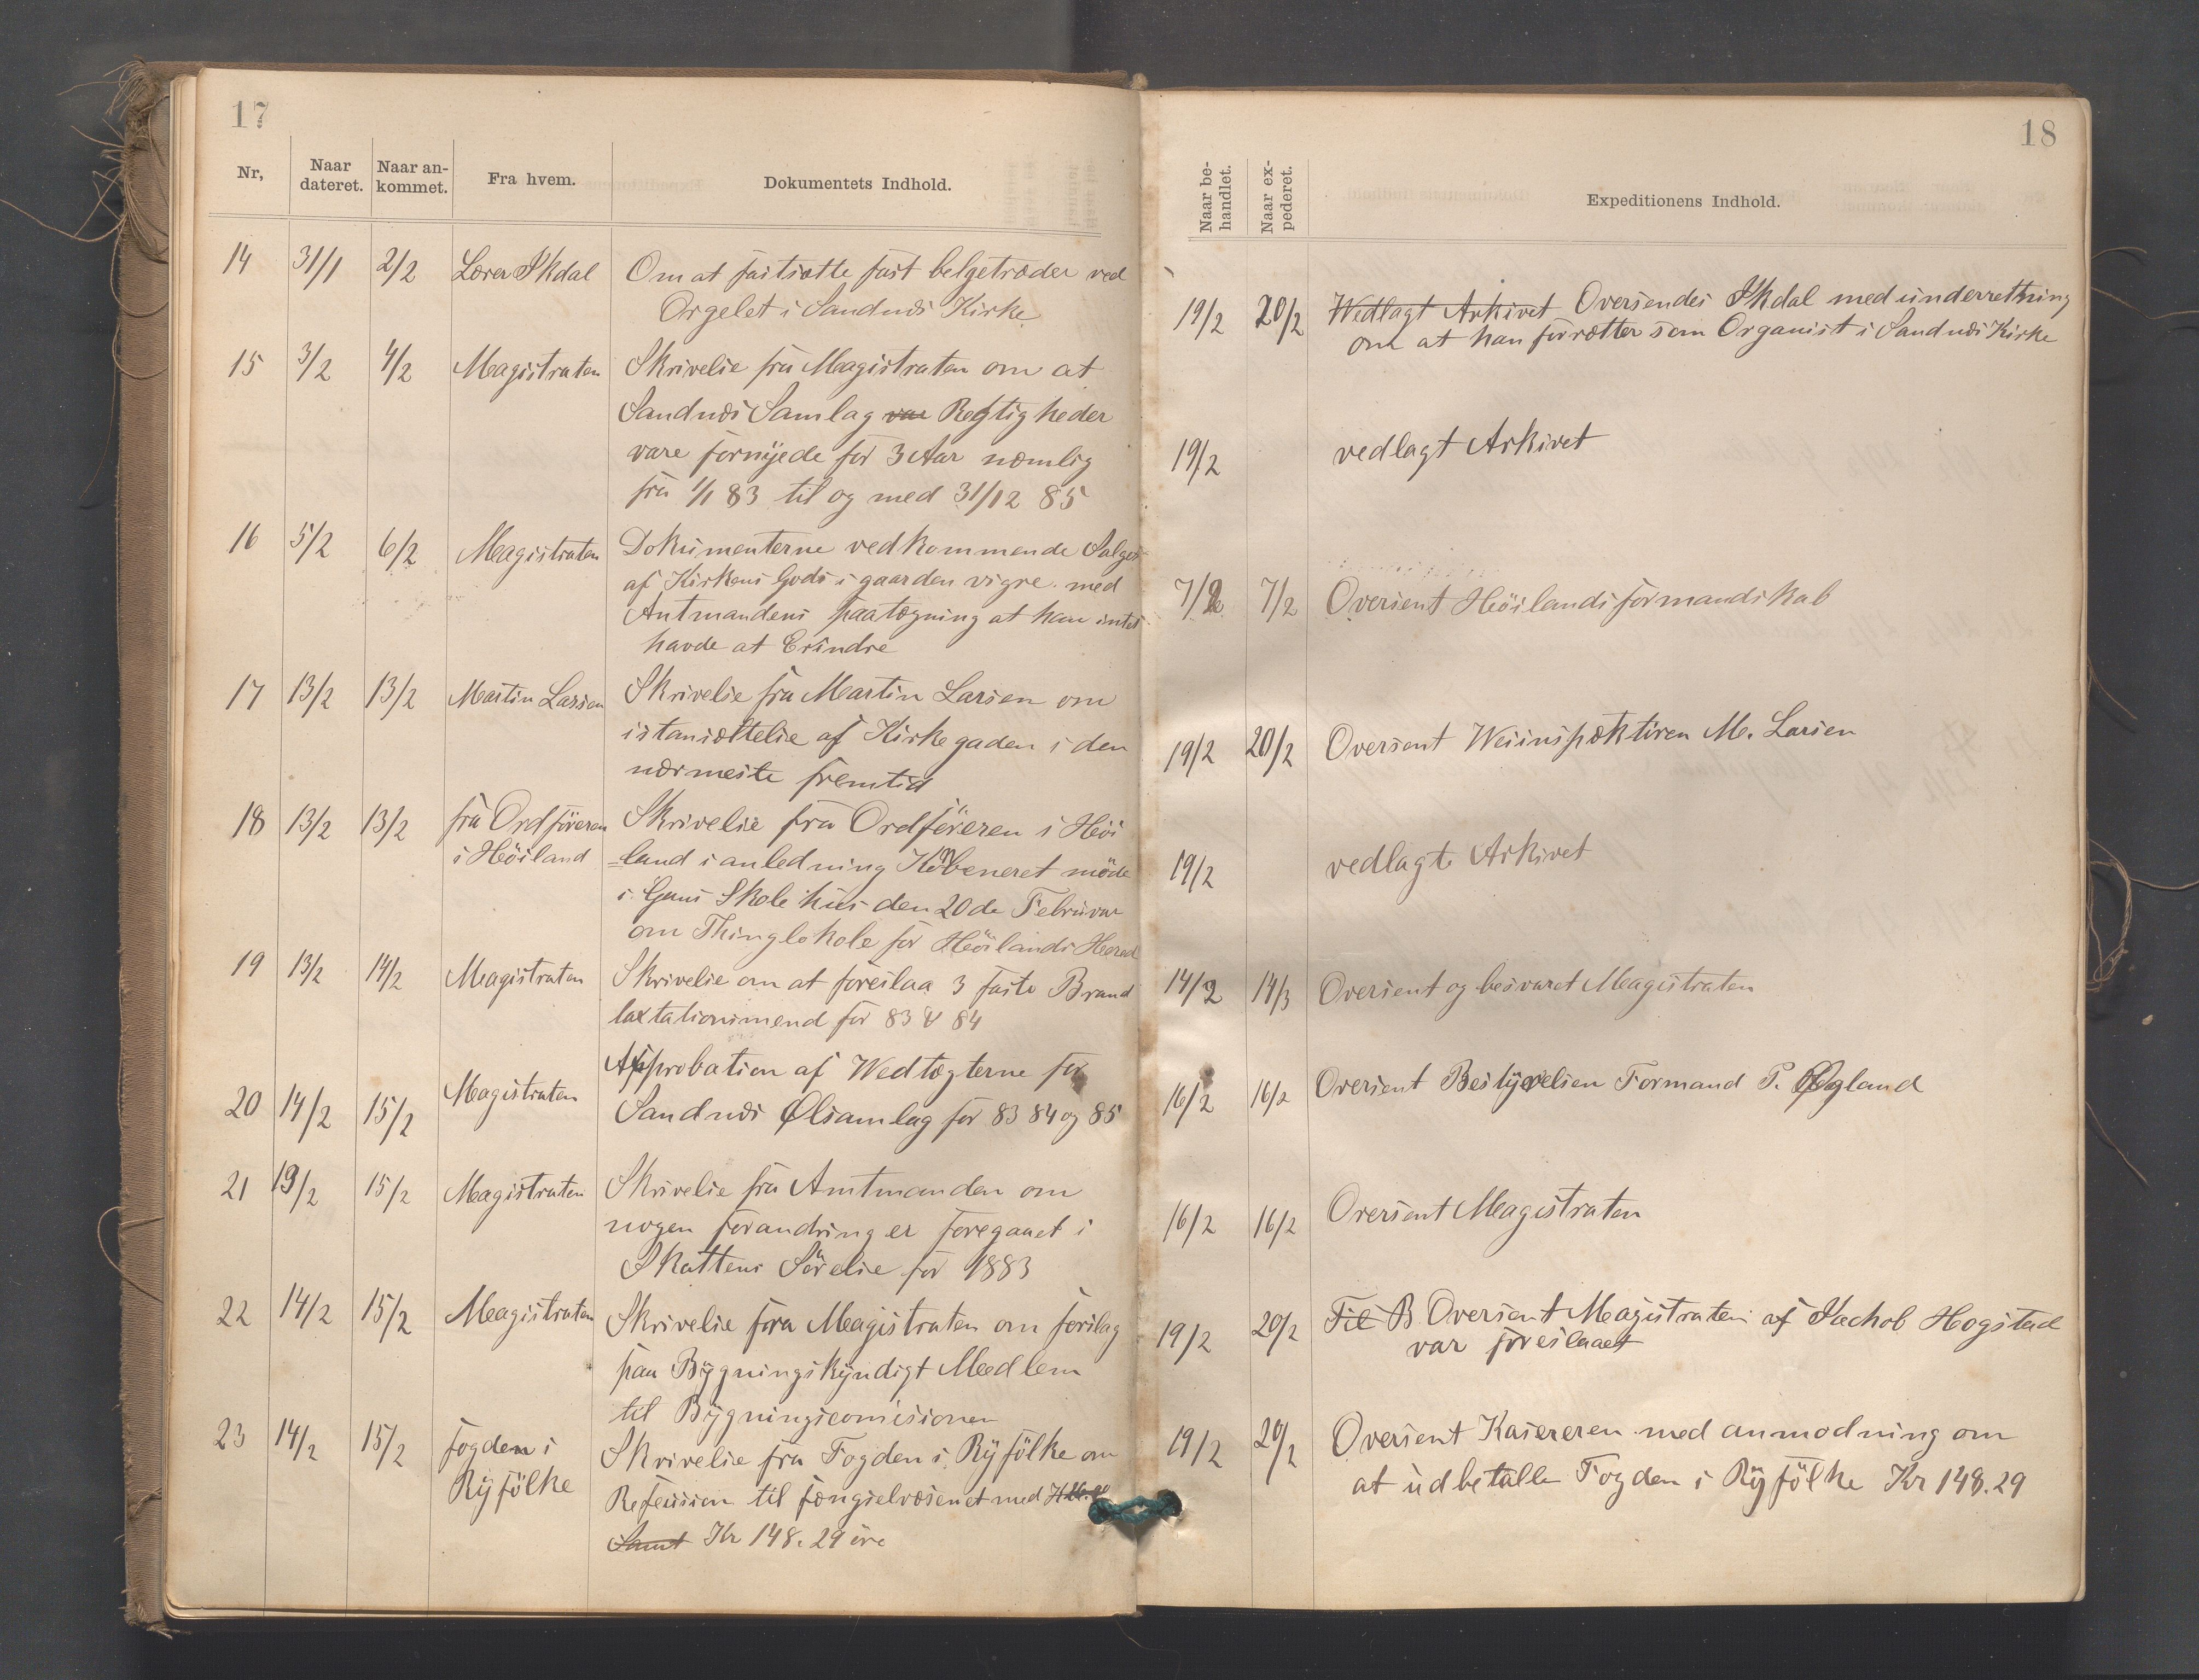 17
Nr, Naar dateret. Naar ankommet. Fra hvem. Dokumentets Indhold.
14 31/1 2/2 Lærer Skdal Om at fastsætte fast belgetræder ved
Orgelet i Sandnæs Kirke
15 3/2 4/2 Magistraten Skrivelse fra Magistraten om at
Sandnæs Samlag var Regtigheder
vare fornyede for 3 Aar næmlig
fra 1/1 83 til og med 31/12 85
16 5/2 6/2 Magistraten Dokumenterne vedkommende Salget
af Kirkens Gods i gaarden vigre med
Amtmandens paategning at han intet
havde at Erindre
17 13/2 13/2 Martin Larsen Skrivelse fra Martin Larsen om
istansættelse af Kirkegaden i den
nærmeste fremtid
18 13/2 13/2 fra Ordföreren Skrivelse fra Ordföreren i Höi
i Höiland =land i anledning Kombeneret möde
i Gans Skolehus den 20de Februar
om Thinglokale for Höilands Hered
19 13/2 14/2 Magistraten Skrivelse om at foreslaa 3 faste Brand
taxtationsmend for 83 & 84
Approbation af Wedtægterne for
20 14/2 15/2 Magistraten Sandnæs Ølsamlag for 83 84 og 85
21 19/2 15/2 Magistraten Skrivelse fra Amtmanden om
nogen forandring er foregaaet i
Skattens Störelse for 1883
22 14/2 15/2 Magistraten Skrivelse fra Magistraten om forslag
paa Bygningskyndigt Medlem
til Bygningscomisionen
23 14/2 15/2 fogden i Skrivelse fra Fogden i Ryfölke om
Ryfölke Refeusion til fængselvæsenet med
Samt Kr 148. 29 öre
18
Naar behandlet. Naar expederet. Expeditionens Indhold.
19/2 20/2 Wedlagt Arkivet Oversendes Skdal med underretning
om at han forretter som Organist i Sandnæs Kirke
19/2 vedlagt Arkivet
7/2 7/2 Oversent Höilands formandskab
19/2 20/2 Oversent Weiinspæktören M. Larsen
19/2 vedlagt Arkivet
14/2 14/3 Oversent og besvaret Magistraten
16/2 16/2 Oversent Bestyrelsen Formand P. Øgland
16/2 16/2 Oversent Magistraten
19/2 20/2 Til B Oversent Magistraten af Jachob Hogstad
var foreslaaet
19/2 20/2 Oversent Kasereren med anmodning om
at udbetalle Fogden i Ryfölke Kr 148.29